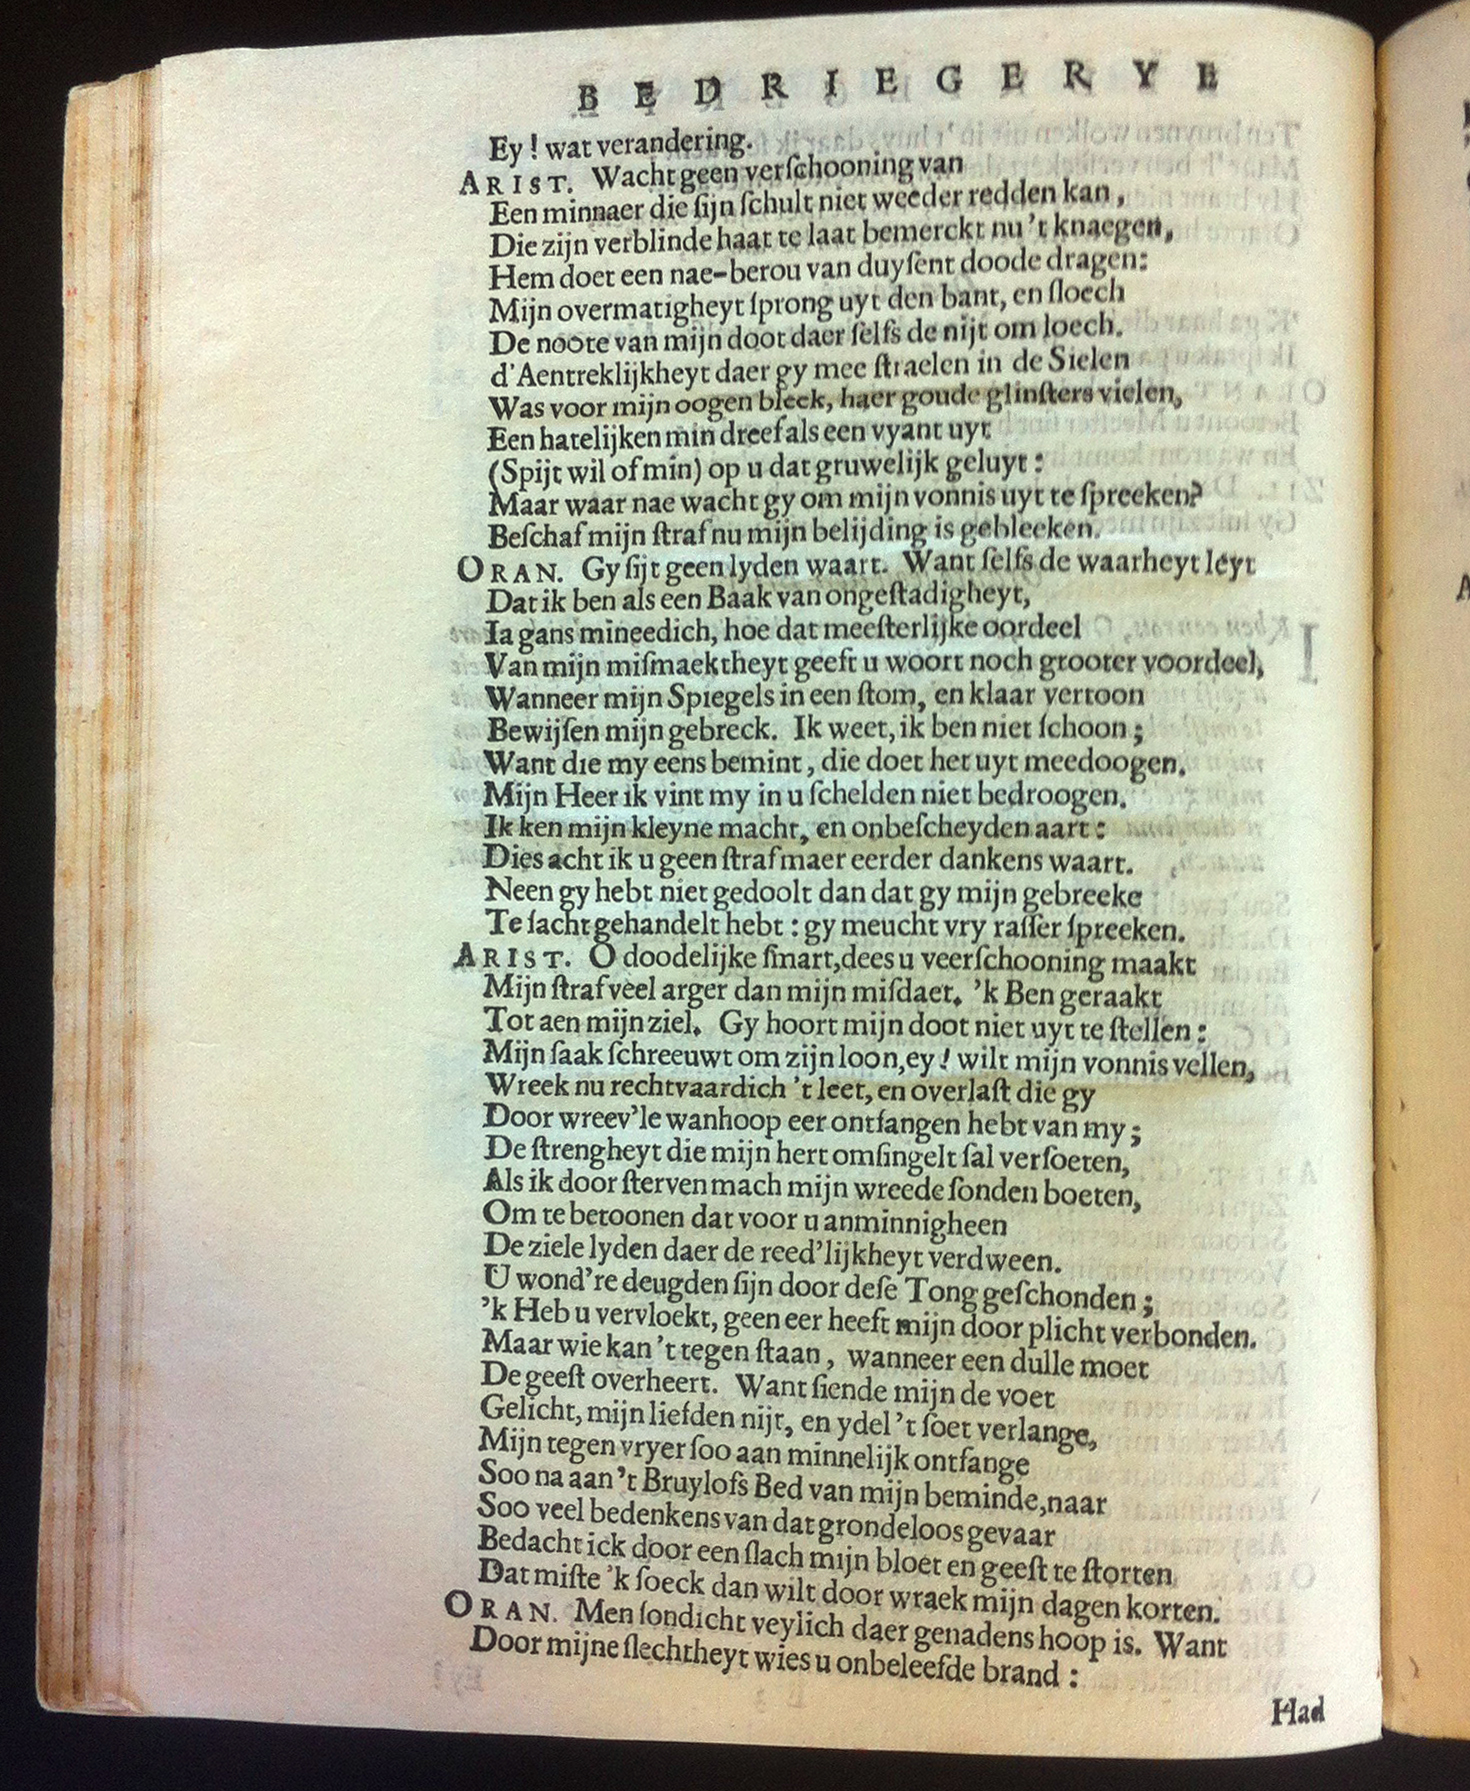 BEDRIEGERYE
Ey! wat verandering.
ARIST. Wacht geen verſchooning van
Een minnaer die ſijn ſchult niet weeder redden kan,
Die zijn verblinde haat te laat bemerckt nu 't knaegen,
Hem doet een nae-berou van duyſent doode dragen:
Mijn overmatigheyt ſprong uyt den bant, en ſloech
De noote van mijn doot daer ſelfs de nijt om loech.
d'Aentreklijkheyt daer gy mee ſtraelen in de Sielen
Was voor mijn oogen bleek, haer goude glinſters vielen,
Een hatelijken min dreef als een vyant uyt
(Spijt wil of min) op u dat gruwelijk geluyt:
Maar waar nae wacht gy om mijn vonnis uyt te ſpreeken?
Beſchaf mijn ſtraf nu mijn belijding is gebleeken.
ORAN. Gy ſijt geen lyden waart. Want ſelfs de waarheyt leyt
Dat ik ben als een Baak van ongeſtadigheyt,
Ia gans mineedich, hoe dat meeſterlijke oordeel
Van mijn miſmaektheyt geeft u woort noch grooter voordeel,
Wanneer mijn Spiegels in een ſtom, en klaar vertoon
Bewijſen mijn gebreck. Ik weet, ik ben niet ſchoon;
Want die my eens bemint, die doet het uyt meedoogen.
Mijn Heer ik vint my in u ſchelden niet bedroogen.
Ik ken mijn kleyne macht, en onbeſcheyden aart:
Dies acht ik u geen ſtraf maer eerder dankens waart.
Neen gy hebt niet gedoolt dan dat gy mijn gebreeke
Te ſacht gehandelt hebt: gy meucht vry raſſer ſpreeken.
ARIST. O doodelijke ſmart, dees u veerſchooning maakt
Mijn ſtraf veel arger dan mijn miſdaet. 'k Ben geraakt
Tot aen mijn ziel. Gy hoort mijn doot niet uyt te ſtellen:
Mijn ſaak ſchreeuwt om zijn loon, ey! wilt mijn vonnis vellen,
Wreek nu rechtvaardich 't leet, en overlaſt die gy
Door wreev'le wanhoop eer ontfangen hebt van my;
De ſtrengheyt die mijn hert omſingelt ſal verſoeten,
Als ik door ſterven mach mijn wreede ſonden boeten,
Om te betoonen dat voor u anminnigheen
De ziele lyden daer de reed'lijkheyt verdween.
U wond're deugden ſijn door deſe Tong geſchonden;
'k Heb u vervloekt, geen eer heeft mijn door plicht verbonden.
Maar wie kan 't tegen ſtaan, wanneer een dulle moet
De geeſt overheert. Want ſiende mijn de voet
Gelicht, mijn liefden nijt, en ydel 't ſoet verlange,
Mijn tegen vryer ſoo aan minnelijk ontfange
Soo na aan 't Bruylofs Bed van mijn beminde, naar
Soo veel bedenkens van dat grondeloos gevaar
Bedacht ick door een ſlach mijn bloet en geeſt te ſtorten
Dat miſte 'k ſoeck dan wilt door wraek mijn dagen korten.
ORAN. Men ſondicht veylich daer genadens hoop is. Want
Door mijne ſlechtheyt wies u onbeleefde brand:
Had